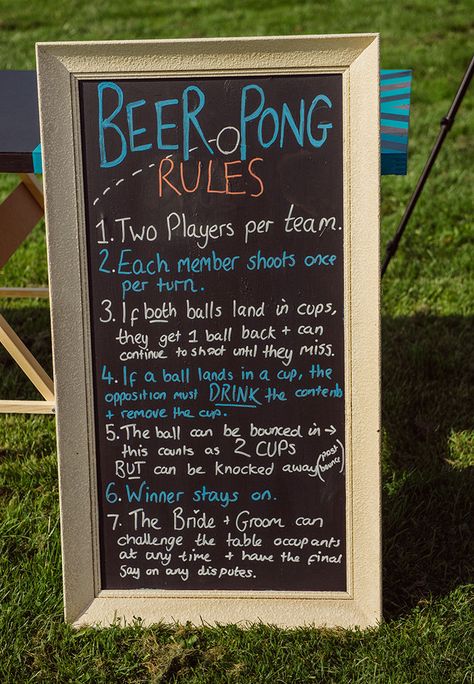 BEER PONG
RULES
1. Two Players per team.
2. Each member shoots once
per turn.
3. If both balls land in cups,
they get 1 ball back + can
continue to shoot until they miss.
4. If a ball lands in a cup, the
opposition must DRINK the contents
+ remove the cup.
5. The ball can be bounced in →
this counts as 2 CUPS
BUT can be knocked away (post bounce)
6. Winner stays on.
7. The Bride + Groom can
challenge the table occupants
at any time + have the final
say on any disputes.